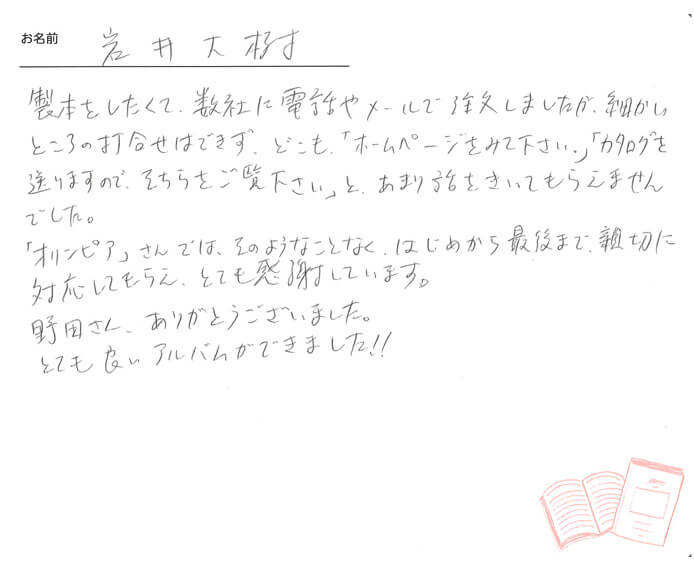 お名前 岩井大樹
製本をしたくて、数社に電話やメールで注文しましたが、細かい
ところの打合せはできず、どこも、「ホームページをみて下さい。」「カタログを
送りますので、そちらをご覧下さい」と、あまり話をきいてもらえません
でした。
「オリンピア」さんでは、そのようなことなく、はじめから最後まで、親切に
対応してもらえ、とても感謝しています。
野田さん、ありがとうございました。
とても良いアルバムができました!!